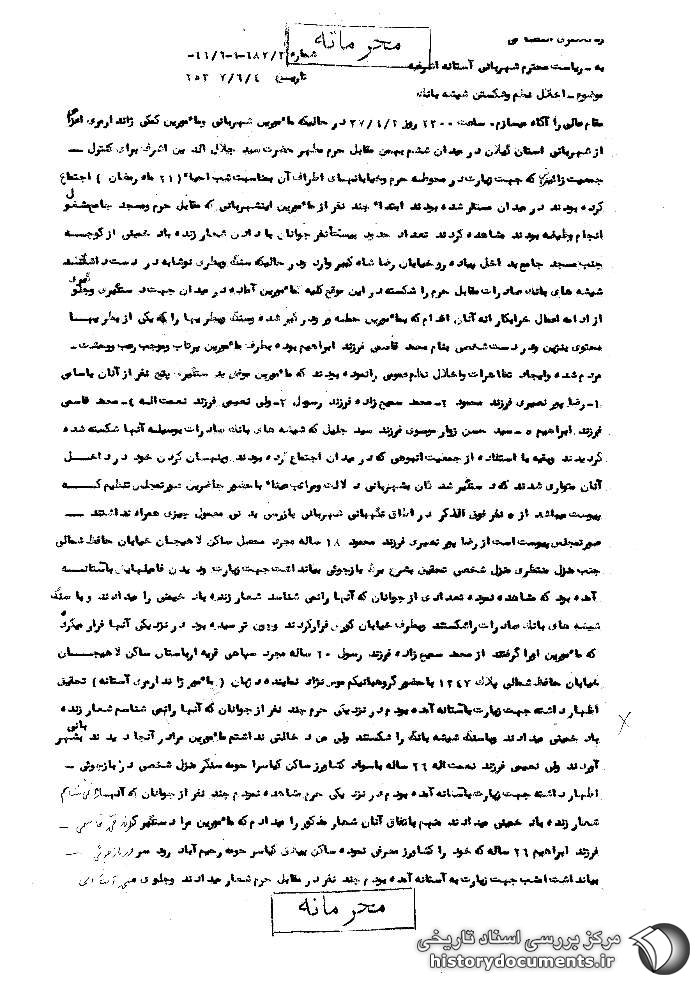 محرمانه
شماره ۶۸۲/۲-۹-۶/۱۱-
به - ریاست محترم شهربانی آستانه اشرفیه
تاریخ ۲۵۳۷/۶/۴
موضوع - اخلال نظم و شکستن شیشه بانک
مقام عالی را آگاه میسازم - ساعت ۲۲۰۰ روز در حالیکه مأمورین شهربانی و مأمورین کمکی ژاندارمری اعزامی
از شهربانی استان گیلان در میدان ششم بهمن مقابل حرم مطهر حضرت سید جلال الدین اشرف برای کنترل -
جمعیت زائرین که جهت زیارت در محوطه حرم و خیابانهای اطراف آن بمناسبت شب احیاء (۲۱ ماه رمضان) اجتماع
کرده بودند در میدان مستقر شده بودند ابتداء چند نفر از مأمورین اینشهربانی که مقابل حرم و مسجد جامع مشغول
انجام وظیفه بودند مشاهده کردند تعداد حدود بیست نفر جوانان با دادن شعار زنده باد خمینی از کوچه
جنب مسجد جامع بداخل پیاده رو خیابان رضا شاه کبیر وارد و در حالیکه سنگ و بطری نوشابه در دست داشتند
شیشه های بانک صادرات مقابل حرم را شکسته در این موقع کلیه مأمورین آماده در میدان جهت دستگیری و جلوگیری
از ادامه اعمال خرابکارانه آنان اقدام که بمأمورین حمله ور و درگیر شده و سنگ و بطریها را که یکی از بطریها
محتوی بنزین و در دست شخصی بنام محمد قاسمی فرزند ابراهیم بوده بطرف مأمورین پرتاب و موجب رعب و وحشت -
مردم شده و ایجاد تظاهرات و اخلال نظم عمومی را نموده بودند که مأمورین موفق بدستگیری پنج نفر از آنان باسامی
۱- رضا پور نصیری فرزند محمود ۲- محمد سمیع زاده فرزند رسول ۳- ولی نعیمی فرزند نعمت اله ۴- محمد قاسمی
فرزند ابراهیم ۵- سید حسن زوار موسوی فرزند سید جلیل که شیشه های بانک صادرات بوسیله آنها شکسته شده
گردیدند و بقیه با استفاده از جمعیت انبوهی که در میدان اجتماع کرده بودند و پنهان کردن خود در داخل
آنان متواری شدند که دستگیرشدگان بشهربانی دلالت و مراتب با حضور حاضرین صورتمجلس تنظیم که
پیوست میباشد از ۵ نفر فوق الذکر در اطاق نگهبانی شهربانی بازرسی بدنی معمول چیزی همراه نداشتند -
صورتمجلس پیوست است از رضا پور نصیری فرزند محمود ۱۸ ساله مجرد محصل ساکن لاهیجان خیابان حافظ شمالی
جنب منزل منتظری منزل شخصی تحقیق بشرح برگ بازجوئی بیان داشت جهت زیارت و دیدن فامیلهایش بآستانه
آمده بود که مشاهده نموده تعدادی از جوانان که آنها را نمی شناسد شعار زنده باد خمینی را میدادند و با سنگ
شیشه های بانک صادرات را شکستند و بطرف خیابان کوی فرار کردند و چون ترسیده بود در نزدیکی آنها فرار میکرد
که مأمورین او را گرفتند از محمد سمیع زاده فرزند رسول ۲۰ ساله مجرد سپاهی قریه اربستان ساکن لاهیجان
خیابان حافظ شمالی پلاک ۱۲۴۷ با حضور گروهبانیکم موس نژاد نماینده (مأمور ژاندارمری آستانه) تحقیق
اظهار داشته جهت زیارت بآستانه آمده بودم در نزدیکی حرم چند نفر از جوانان که آنها را نمی شناسم شعار زنده
باد خمینی میدادند و با سنگ شیشه بانک را شکستند ولی من دخالتی نداشتم مأمورین مرا در آنجا دیدند بشهربانی
آوردند ولی نعیمی فرزند نعمت اله ۲۶ ساله باسواد کشاورز ساکن کیاسرا حومه سنگر منزل شخصی در بازجوئی -
اظهار داشته جهت زیارت بآستانه آمده بودم در نزدیکی حرم مشاهده نمودم چند نفر از جوانان که آنها را نمی شناسم
شعار زنده باد خمینی میدادند منهم باتفاق آنان شعار مذکور را میدادم که مأمورین مرا دستگیر کردند محمد قاسمی -
فرزند ابراهیم ۲۶ ساله که خود را کشاورز معرفی نموده ساکن کیاسر حومه رحیم آباد رودسر در بازجوئی -
بیان داشت امشب جهت زیارت به آستانه آمده بودم چند نفر در مقابل حرم شعار میدادند و جلوی
محرمانه
مرکز بررسی اسناد تاریخی
historydocuments.ir